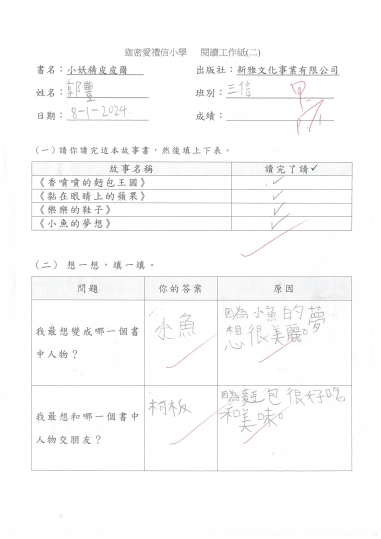 迦密愛禮信小學 閱讀工作紙(二)
書名：小妖精皮皮爾 出版社：新雅文化事業有限公司
姓名：郭豐 班別：三信
日期：8-1-2024 成績：甲
(一)請你讀完這本故事書，然後填上下表。
故事名稱 讀完了請✓
《香噴噴的麵包王國》 ✓
《黏在眼睛上的蘋果》 ✓
《樂樂的鞋子》 ✓
《小魚的夢想》 ✓
(二) 想一想，填一填。
問題 你的答案 原因
我最想變成哪一個書中人物？ 小魚 因為小魚的夢想很美麗。
我最想和哪一個書中人物交朋友？ 柯板 因為麵包很好吃和美味。